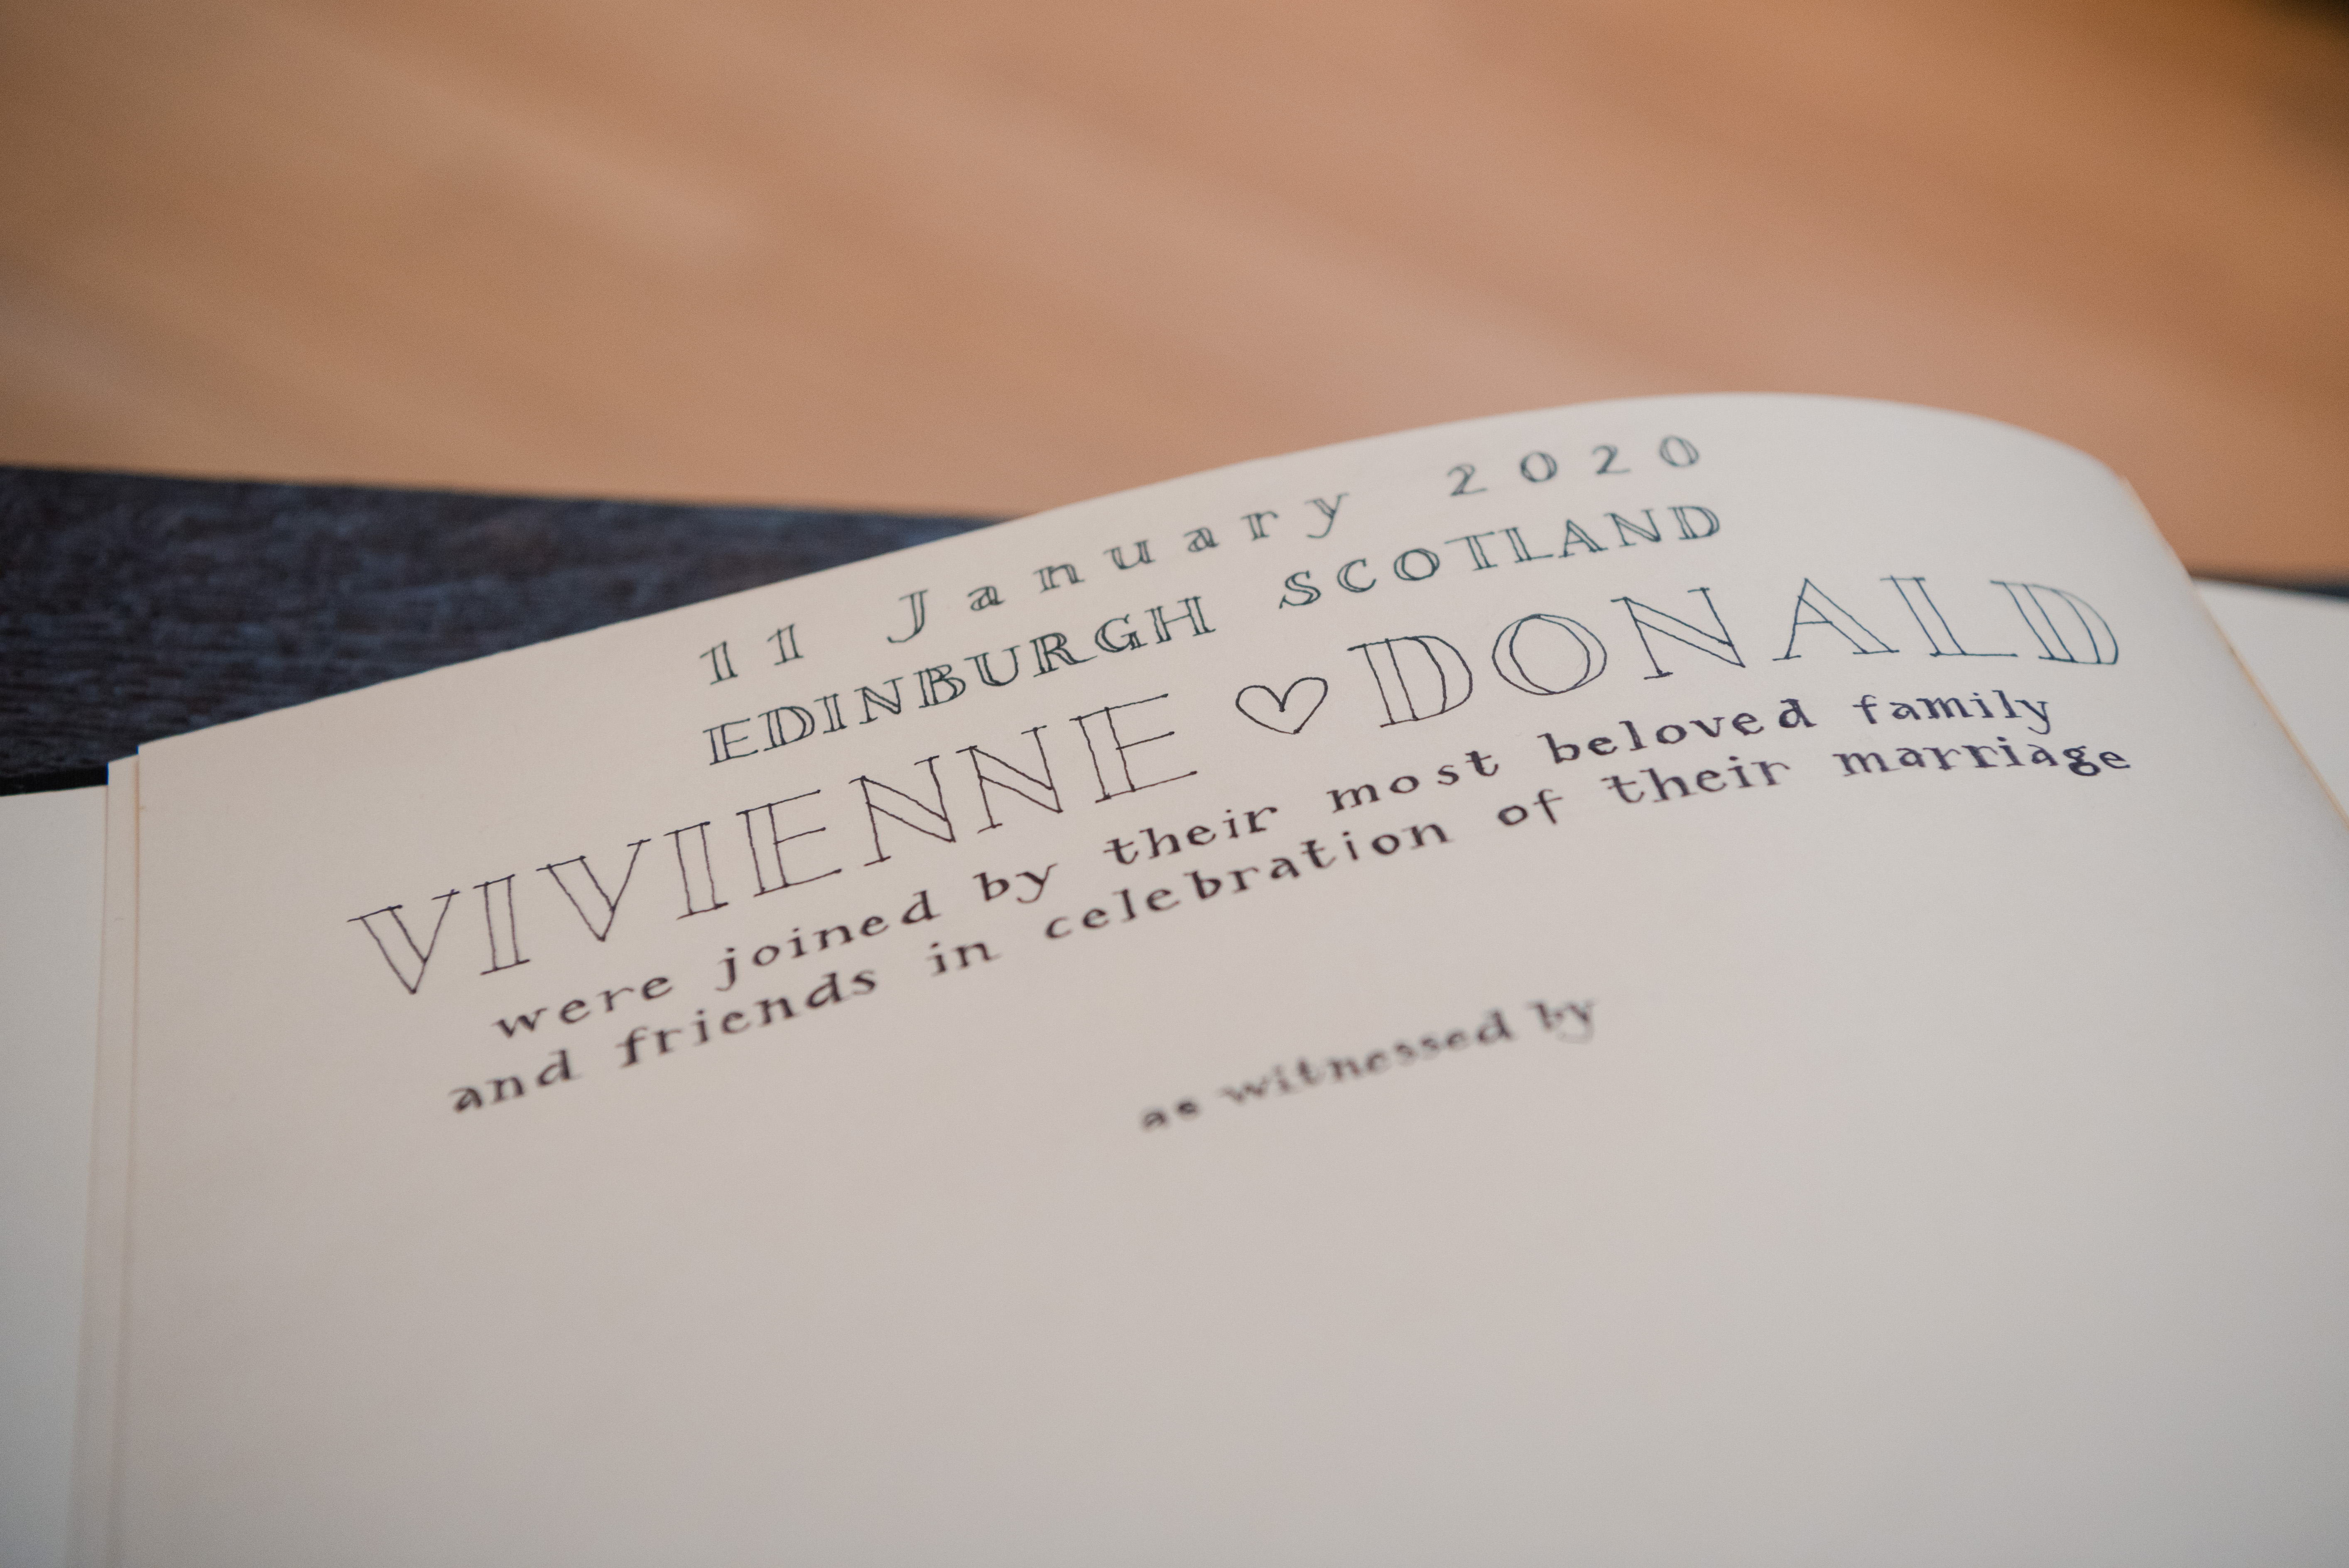 11 January 2020
EDINBURGH SCOTLAND
VIVIENNE ♡ DONALD
were joined by their most beloved family
and friends in celebration of their marriage
as witnessed by